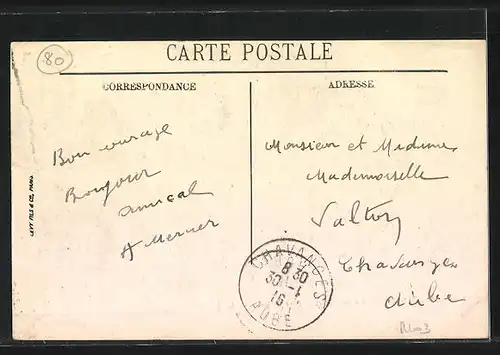 80
CARTE POSTALE
CORRESPONDANCE
ADRESSE
Bon courage
Bonjour
amical
A Mercier
Monsieur et Madame
Mademoiselle
Valton
Chavanges
Aube
CHAVANGES
8 30
30 - 4
16
AUBE
LEVY FILS & CO, PARIS